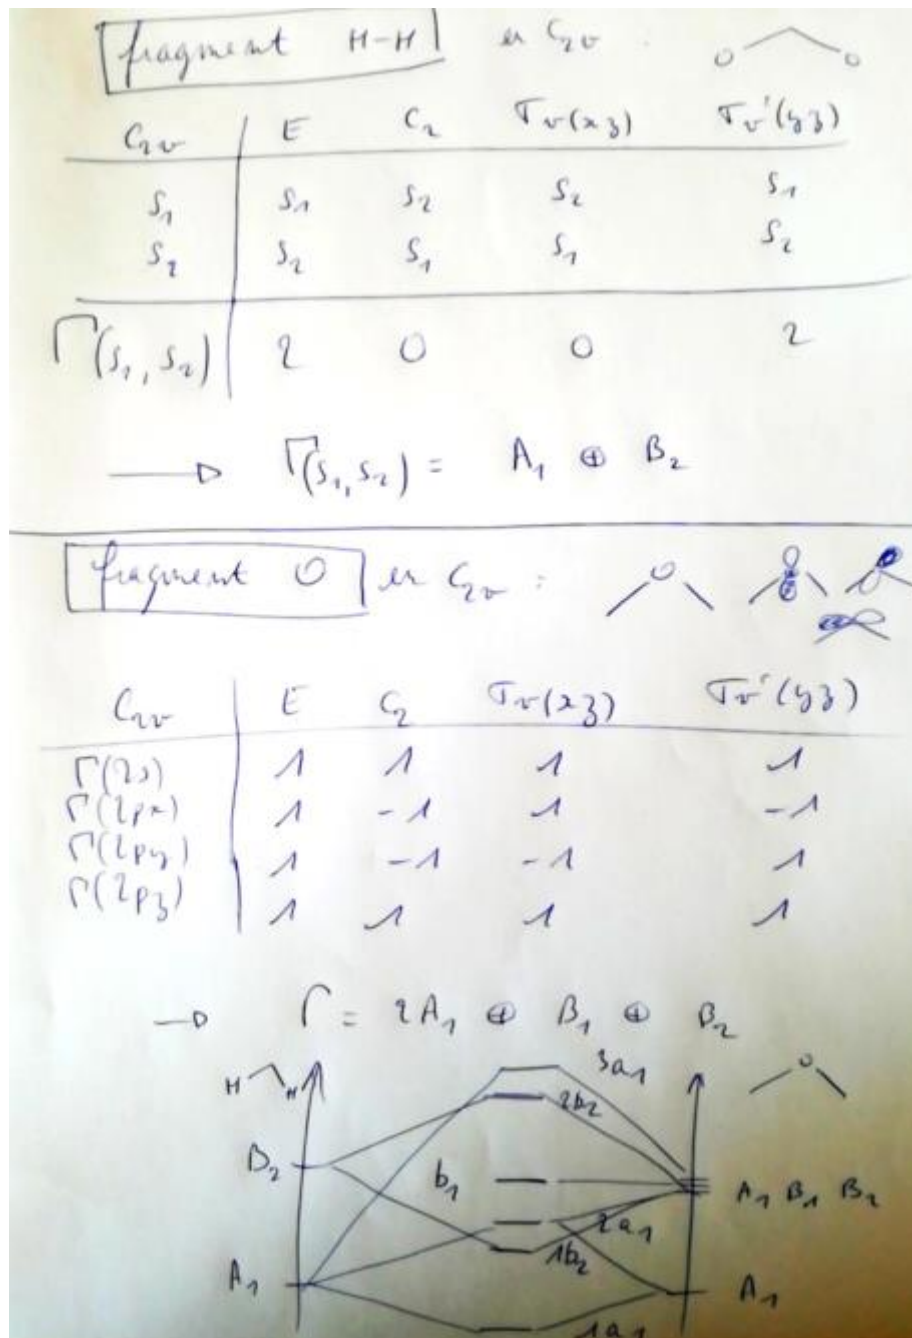 fragment H-H en C₂ᵥ :
C₂ᵥ E C₂ σᵥ(xz) σᵥ'(yz)
S₁ S₁ S₂ S₂ S₁
S₂ S₂ S₁ S₁ S₂
Γ(S₁, S₂) 2 0 0 2
→ Γ(S₁, S₂) = A₁ ⊕ B₂
fragment O en C₂ᵥ :
C₂ᵥ E C₂ σᵥ(xz) σᵥ'(yz)
Γ(2s) 1 1 1 1
Γ(2px) 1 -1 1 -1
Γ(2py) 1 -1 -1 1
Γ(2pz) 1 1 1 1
→ Γ = 2A₁ ⊕ B₁ ⊕ B₂
H H 3a₁
2b₂
B₂ b₁ A₁ B₁ B₂
2a₁
1b₂
A₁ A₁
1a₁